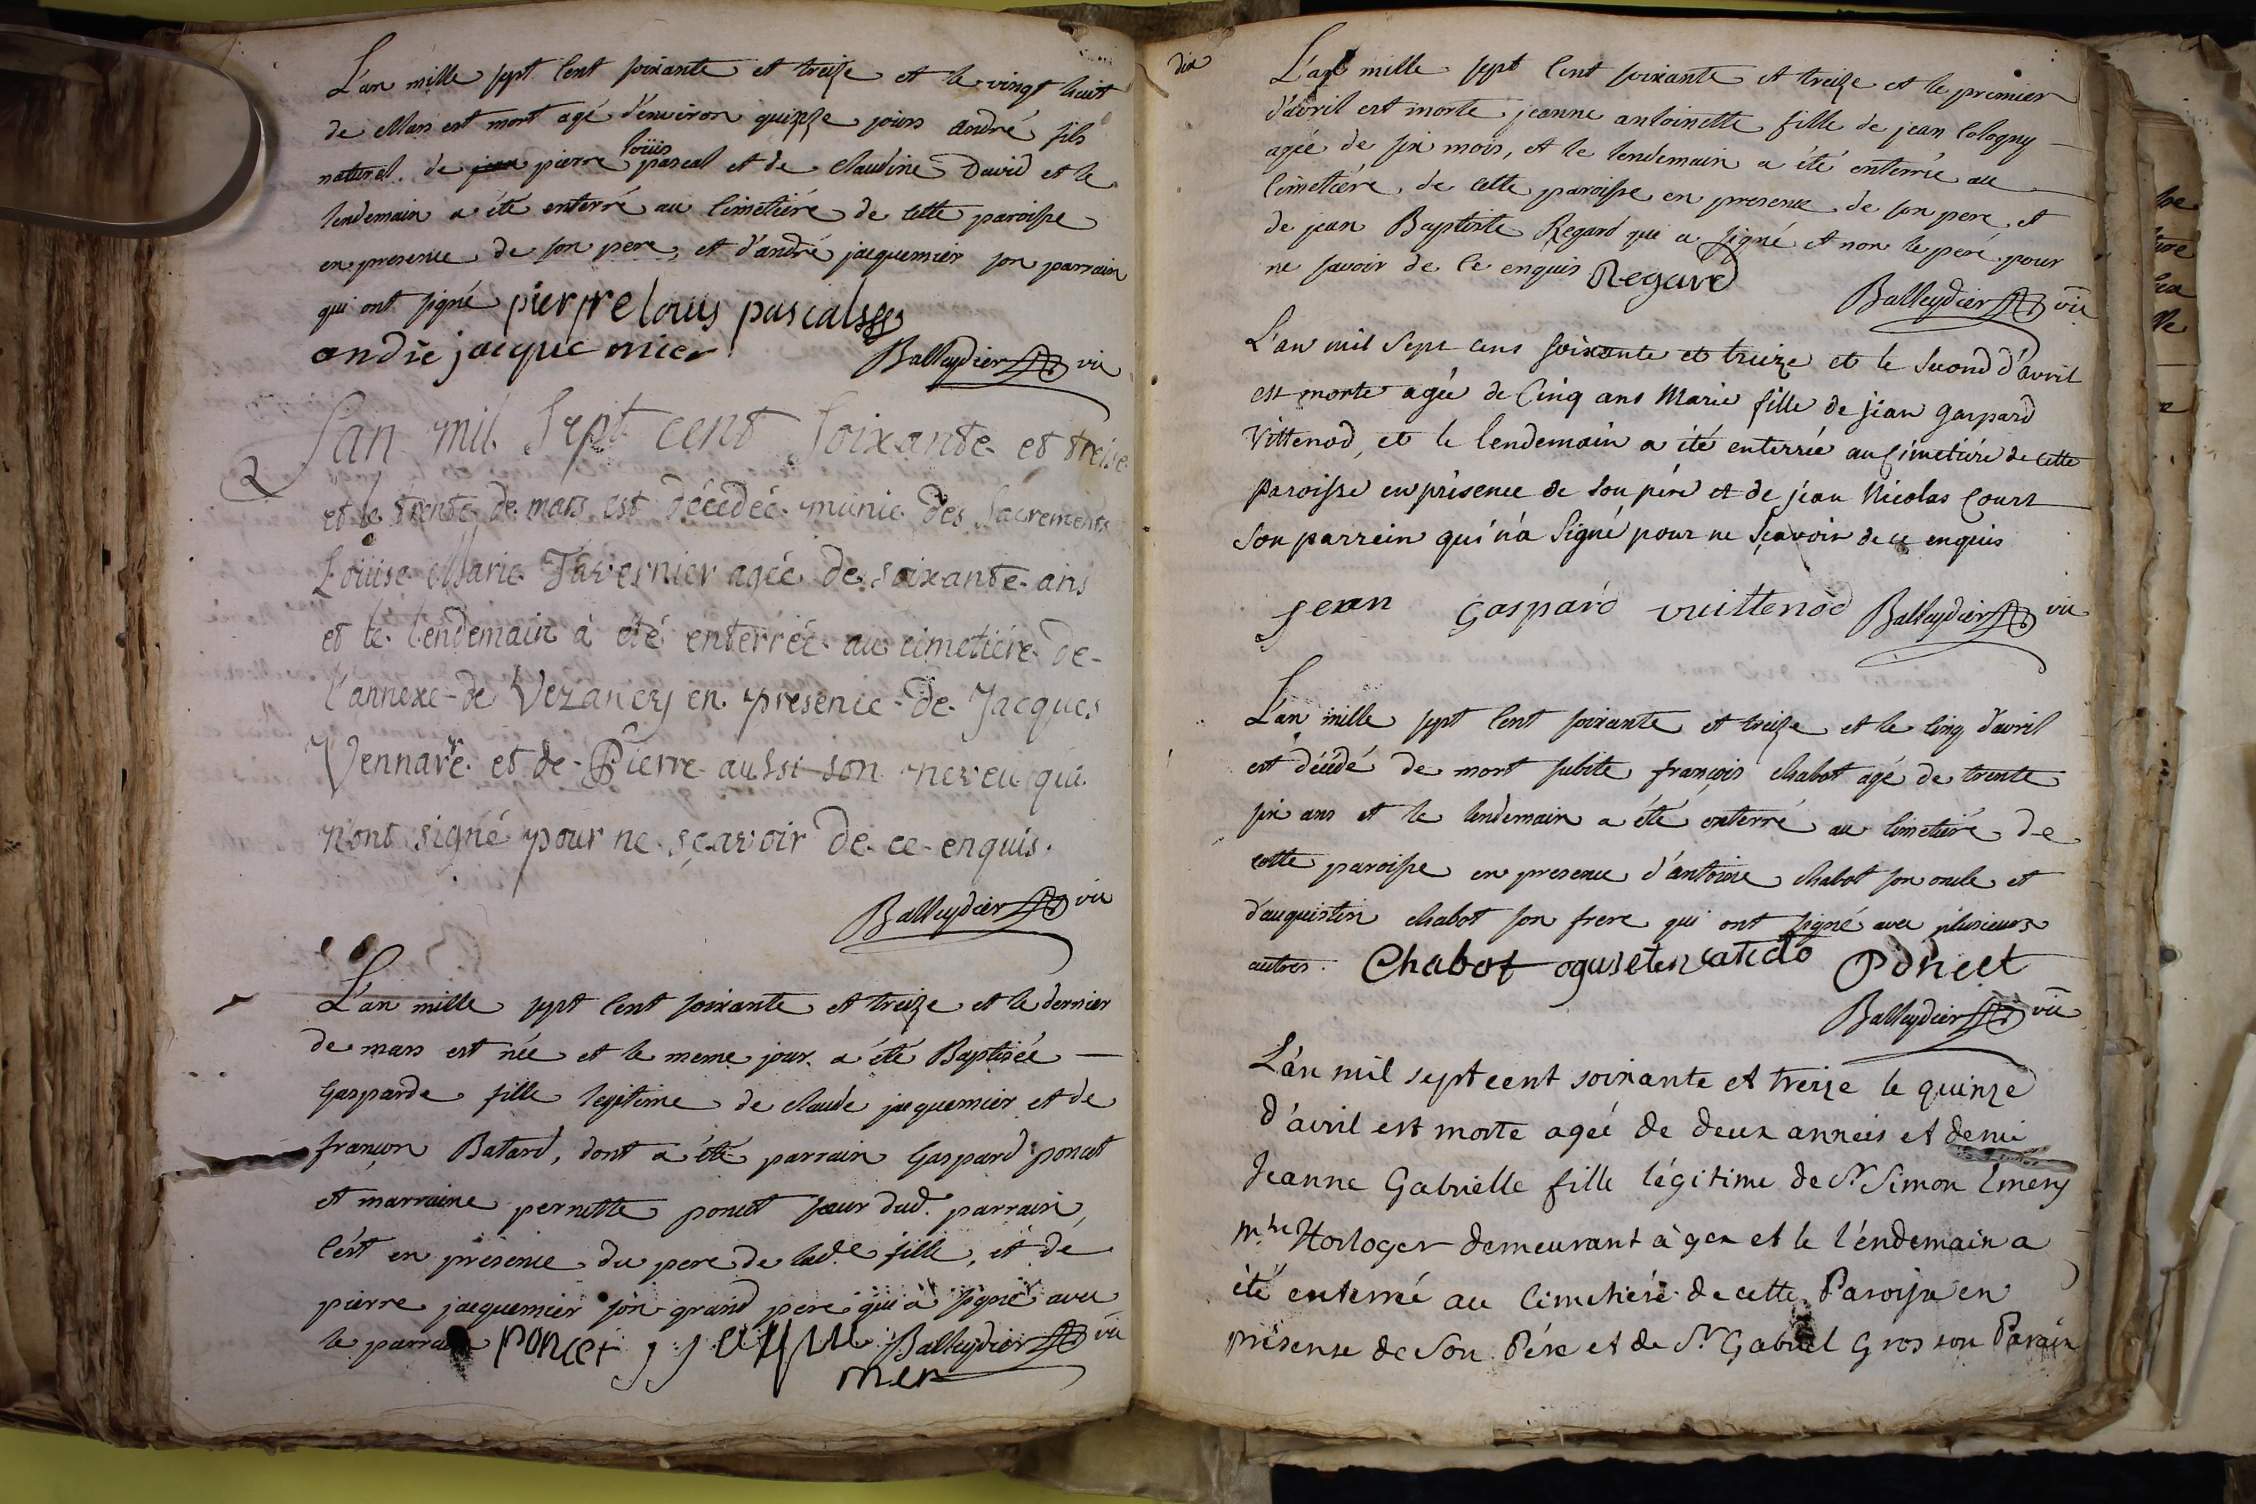 L'an mille sept cent soixante et treize et le vingt huit
de Mars est mort agé d'environ quinze jours andré fils
naturel de jean pierre loüis pascal et de Claudine David et le
lendemain a été enterré au Cimetiére de cette paroisse
en presence de son pere, et d'andré jacquemier son parrain
qui ont signé pierrre louis pascal
andre jacque mier Balleydier vic
L'an mil sept cent soixante et treise
et le trente de mars est décédée munie des sacrements
Loüise Marie Tavernier agée de soixante ans
et le lendemain à été enterrée au cimetiére de
l'annexe de Vezancy en presence de Jacques
Vennare et de Pierre aussi son neveu qui
n'ont signé pour ne sçavoir de ce enquis.
Balleydier vic
L'an mille sept cent soixante et treize et le dernier
de mars est née et le meme jour a été Baptisée
Gasparde fille legitime de claude jacquemier et de
françon Batard, dont a été parrain Gaspard poncet
et marraine pernette poncet sœur dud. parrain,
c'ést en présence du pere de lad.e fille, et de
pierre jacquemier son grand pere qui a signé avec
le parrain Poncet Balleydier vic
mier
dix
L'an mille sept cent soixante et treize et le premier
d'avril est morte jeanne antoinette fille de jean Cologny
agée de six mois, et le lendemain a été enterrée au
Cimetiére de cette paroisse en presence de son pere et
de jean Baptiste Regard qui a signé et non le peré pour
ne savoir de ce enquis Regard
Balleydier vic
L'an mil sept cens soixante et treize et le second d'avril
est morte agée de Cinq ans Marie fille de jean gaspard
Vittenod, et le lendemain a été enterrée au Cimetiére de cette
Paroisse en présence de son pére et de jean Nicolas Court
son parrein qui n'a signé pour ne sçavoir de ce enquis
jean gaspard vuittenod Balleydier vic
L'an mille sept cent soixante et treize et le cinq d'avril
est décédé de mort subite françois chabot agé de trente
six ans et le lendemain a été enterré au Cimetiére de
cette paroisse en presence d'antoine chabot son oncle et
d'auguistin chabot son frere qui ont signé avec plusieurs
autres. Chabot ogusten Poncet
Balleydier vic
L'an mil sept cent soixante et treize le quinze
d'avril est morte ageé de deux anneés et demi
Jeanne Gabrielle fille légitime de Sr Simon Emery
m.tre Horloger demeurant à gex et le l'éndemain a
été enterré au Cimetiére de cette Paroisse en
présense de son Pére et de Sr Gabriel Gros son Parain